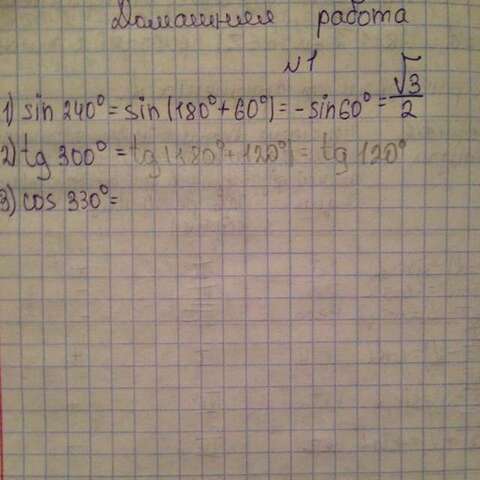 Домашняя работа
№1
1) sin 240° = sin (180° + 60°) = -sin60° = √3/2
2) tg 300° = tg (180° + 120°) = tg 120°
3) cos 330° =